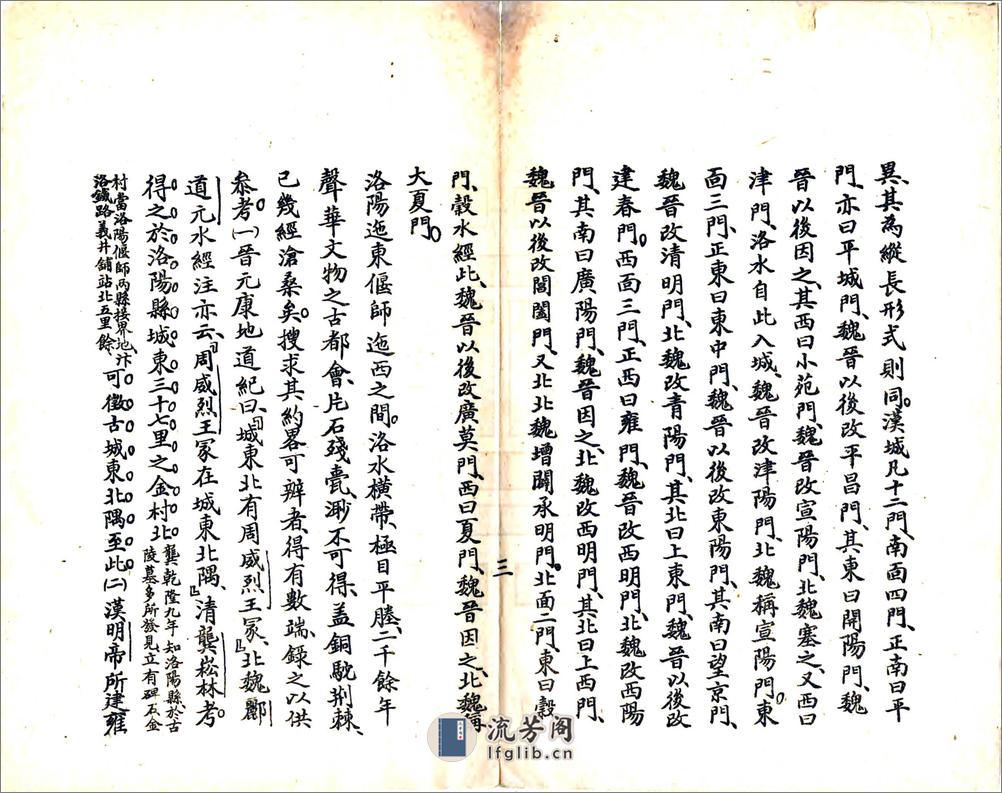 異、其為縱長形式則同。漢城凡十二門、南面四門、正南曰平
門、亦曰平城門、魏晉以後改平昌門、其東曰開陽門、魏
晉以後因之、其西曰小苑門、魏晉改宣陽門、北魏塞之、又西曰
津門、洛水自此入城、魏晉改津陽門、北魏稱宣陽門。東
面三門、正東曰東中門、魏晉以後改東陽門、其南曰望京門、
魏晉改清明門、北魏改青陽門、其北曰上東門、魏晉以後改
建春門。西面三門、正西曰雍門、魏晉改西明門、北魏改西陽
門、其南曰廣陽門、魏晉因之、北魏改西明門、其北曰上西門、
魏晉以後改閶闔門、又北北魏增闢承明門。北面二門、東曰穀
門、穀水經此、魏晉以後改廣莫門、西曰夏門、魏晉因之、北魏稱
大夏門。
三
洛陽迤東偃師迤西之間。洛水橫帶、極目平塍、二千餘年
聲華文物之古都會、片石殘甍、渺不可得、蓋銅駝荊棘、
已幾經滄桑矣。搜求其約畧可辨者、得有數端、錄之以供
參考。(一)晉元康地道紀曰、「城東北有周威烈王冢」、北魏酈
道元水經注亦云、「周威烈王冢在城東北隅」、清龔崧林考
得之於洛陽縣城東三十七里之金村北。龔乾隆九年知洛陽縣於古
陵墓多所發見立有碑石金
村當洛陽偃師兩縣接界地汴
洛鐵路義井舖站北五里餘、可徵古城東北隅至此。(二)漢明帝所建雍
流芳阁
lfglib.cn